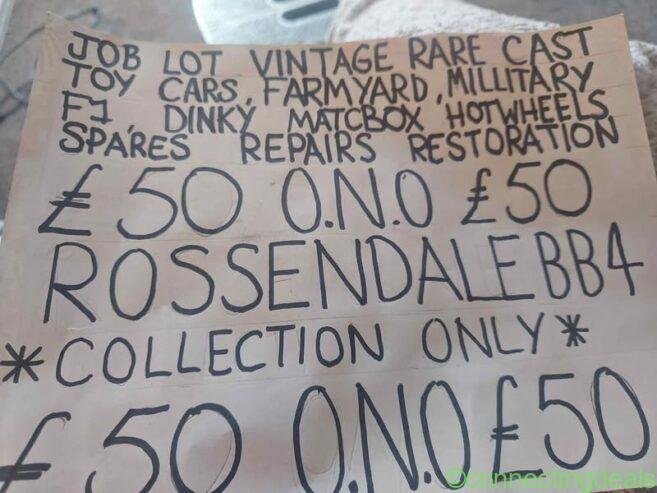 JOB LOT VINTAGE RARE CAST
TOY CARS, FARMYARD, MILLITARY
F1, DINKY, MATCBOX, HOTWHEELS
SPARES REPAIRS RESTORATION
£50 O.N.O £50
ROSSENDALE BB4
*COLLECTION ONLY*
£50 O.N.O £50
©connectingdeals